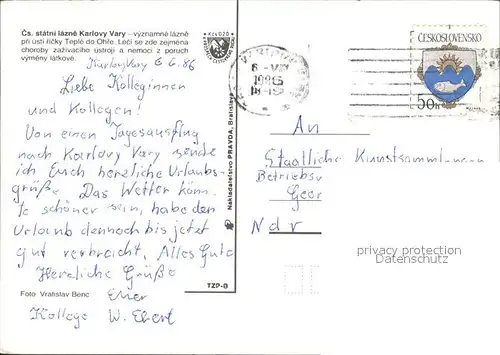 Čs. státní lázně Karlovy Vary – významné lázně
při ústí říčky Teplé do Ohře. Léčí se zde zejména
choroby zažívacího ústrojí a nemoci z poruch
výměny látkové.
Karlovy Vary 6.6.86
Liebe Kolleginnen
und Kollegen!
Von einen Tagesausflug
nach Karlovy Vary sende
ich Euch herzliche Urlaubs-
grüße. Das Wetter könn-
te schöner sein, habe den
Urlaub dennoch bis jetzt
gut verbracht. Alles Gute
Herzliche Grüße
Euer
Kollege W. Ebert
Foto Vratislav Benc
TZP-8
Nakladatelstvo PRAVDA, Bratislava
Kčs 0,20
ČESKOSLOVENSKO
50h
An
Staatliche Kunstsammlungen
Betriebsv
Geor
Ndr
privacy protection
watermark